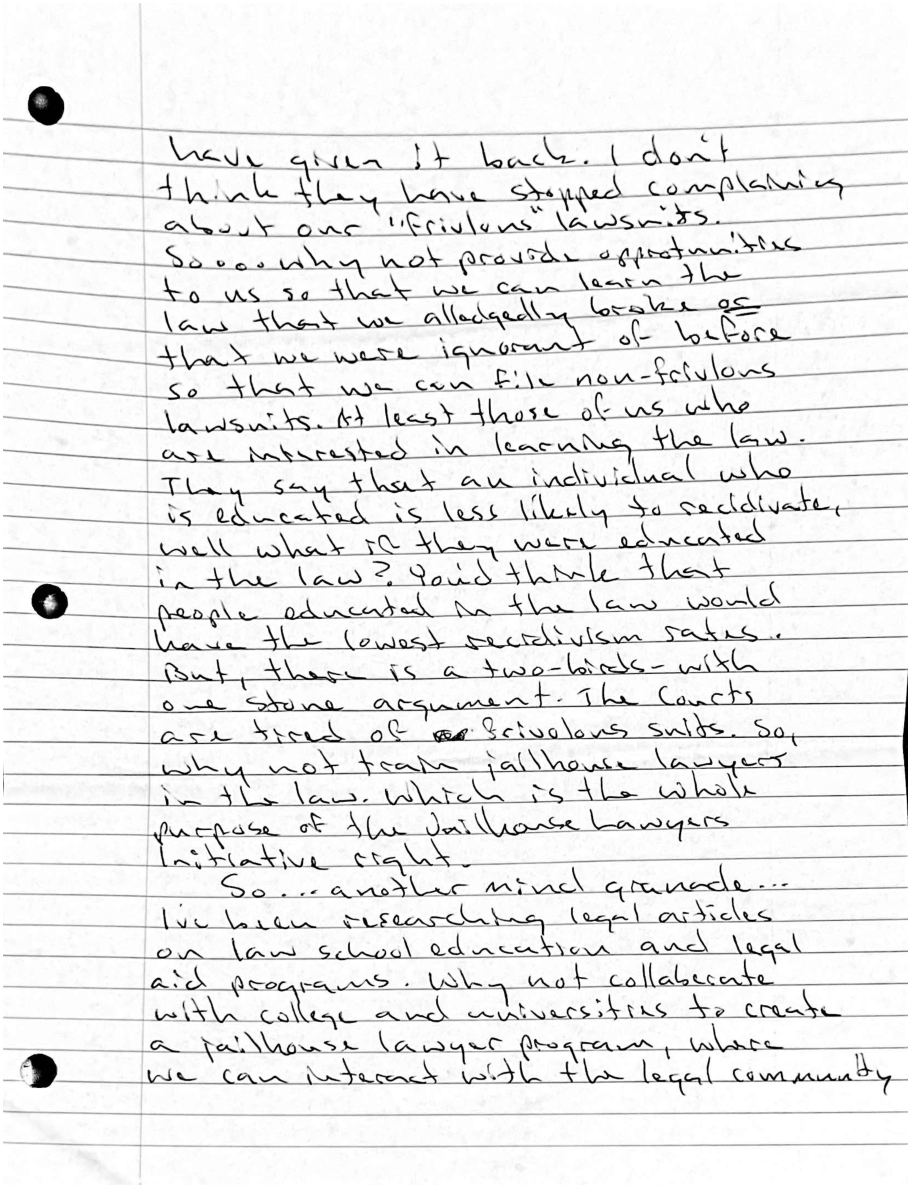 have given it back. I don't
think they have stopped complaining
about our "frivlous" lawsuits.
So... why not provide opprotunities
to us so that we can learn the
law that we alledgedly broke or
that we were ignorant of before
so that we can file non-frivlous
lawsuits. At least those of us who
are interested in learning the law.
They say that an individual who
is educated is less likely to recidivate,
well what if they were educated
in the law? You'd think that
people educated in the law would
have the lowest recidivism rates.
But, there is a two-birds-with
one stone argument. The Courts
are tired of frivolous suits. So,
why not train jailhouse lawyers
in the law. Which is the whole
purpose of the Jailhouse Lawyers
Initiative right.
So... another mind granade...
I've been researching legal articles
on law school education and legal
aid programs. Why not collaberate
with college and universities to create
a jailhouse lawyer program, where
we can interact with the legal community